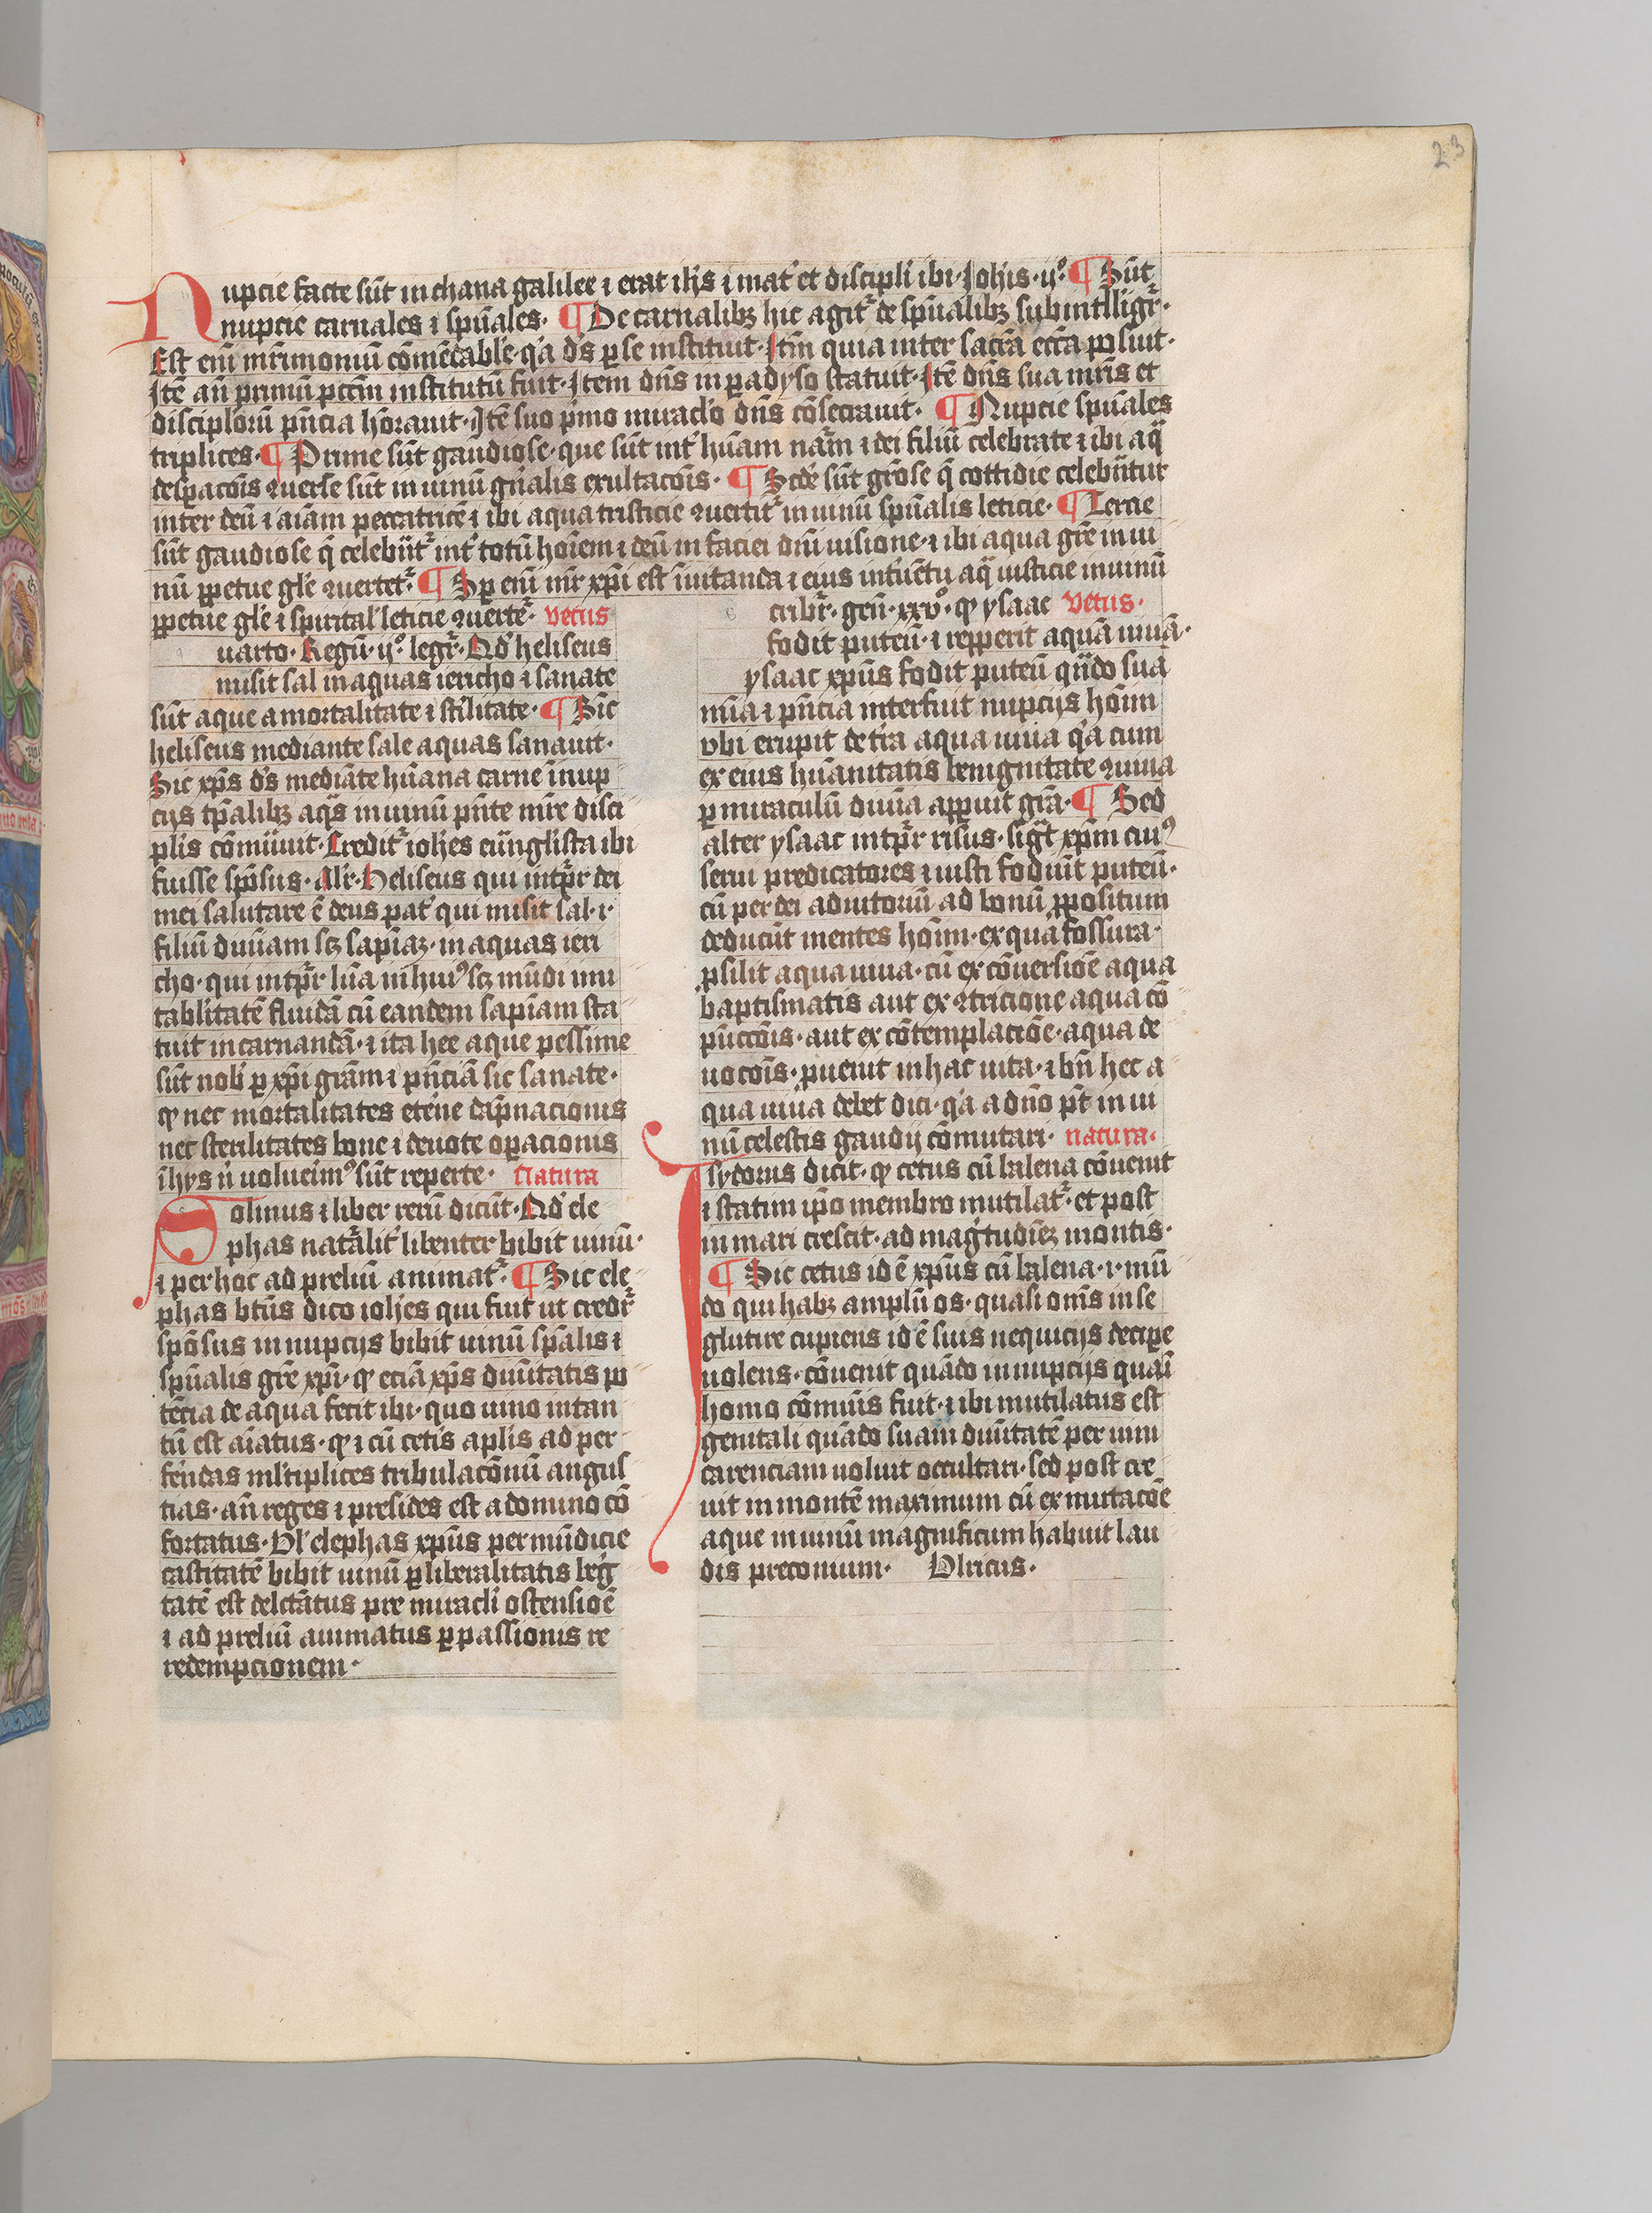 23
Nupcie facte sūt in chana galilee ⁊ erat ih̄s ⁊ mat᷒ et discipl᷒i ibi · Joh̄is · ijº · ¶ Sūt
nupcie carnales ⁊ sp̄uales · ¶ De carnalibꝫ hic agit᷑ de sp̄ualibꝫ subintlligr̄ ·
Est enī mr̄imoniū cōmēdabl̄e · qͥa d̄s ꝑ se instituit · Itm̄ quia inter sacrā eccā posuit ·
Itē an̄ primū pccm̄ institutū fuit · Item dn̄s in ꝑadyso statuit · Itē dn̄s sua mr̄is et
disciplorū pn̄cia hōrauit · Itē suo pͥmo miracl̓o dn̄s cōsecrauit · ¶ Nupcie sp̄uales
triplices · ¶ Prime sūt gaudiose · que sūt int᷒ hūam nar̄m ⁊ dei filiū celebrate ⁊ ibi aq̄
despacōis ꝯuerse sūt in uinū gn̄alis exultacōis · ¶ Scd̄e sūt grōse q̄ cottidie celebn̄tur
inter deū ⁊ aīam peccatricē ⁊ ibi aqua tristicie ꝯuertit᷑ in uinū sp̄ualis leticie · ¶ Tercie
sūt gaudiose q̄ celebn̄t᷑ int᷒ totū hoīem ⁊ deū in faciei diui uisione · ⁊ ibi aqua grē in ui
nū ꝑpetue gl̄e ꝯuertet᷑ · ¶ Sꝑ enī mr̄ xp̄i est īuitanda ⁊ eius int᷒uētu aq̄ iusticie in uinū
ꝑpetue gl̄e ⁊ spirital᷒ leticie ꝯuertē᷑ · vetus
uarto · Regū · ijº · legr̄ · Qd̓ heliseus
misit sal in aquas iericho ⁊ sanate
sūt aque a mortalitate ⁊ st᷒ilitate · ¶ Sic
heliseus mediante sale aquas sanauit ·
Sic xp̄s d̄s mediāte hūana carne ī nup
cijs tp̄alibꝫ aqͣs in uinū pn̄te mr̄e disci
plis cōmūiuit · Credit᷑ ioh̄es euāglista ibi
fuisse spōsus · Alr̄ · Heliseus qui intp̄r dei
mei salutare ē deus pat᷒ qui misit sal · ⁊ ·
filiū diuinam sꝫ sapīaꝫ · in aquas ieri
cho · qui intp̄r luna in huiꝰ sꝫ mūdi mu
tabl̓itatē fluidā cū eandem sapīam sta
tuit incarnandā · ⁊ ita hec aque pessime
sūt nob᷒ ꝑ xp̄i grām ⁊ pn̄ciā sic sanate ·
ꝙ nec mortalitates et᷒ne dāpnacionis
nec sterilitates bone ⁊ deuote oꝑacionis
ī hys n̄ uoluerimꝰ sūt reperte · Natura
Solinus ⁊ liber rerū dicūt · Qd̓ ele
phas nat᷑alit᷒ libenter bibit uinū ·
⁊ per hoc ad preliū animat᷑ · ¶ Sic ele
phas bt̄us dico ioh̄es qui fuit ut credr̄
spōsus in nupcijs bibit uinū sp̄alis ⁊
sp̄ualis grē xp̄i · ꝙ eciā xp̄s diuinitatis po
tēcia de aqua fecit ibi · quo uino in tan
tū est aīatus · ꝙ ⁊ cū cetis aplīs ad per
ferēdas ml̓tiplices tribulacōnū angus
tias · an̄ reges ⁊ presides est a domino cō
fortatus · Vl᷒ elephas xp̄us per mūdicie
castitatē bibit uinū ꝑ liberalitatis leg̓
tatē est delc̄tatus pre miracl̓i ostensioē
⁊ ad preliū animatus ꝑ passionis re
redempcionem ·
cribr̄ · gen̄ · xxvº · ꝙ ysaac Vetus ·
fodit puteū · ⁊ repperit aquā uiuā ·
ysaac xp̄us fodit puteū qn̄do sua
mīa ⁊ pn̄cia interfuit nupcijs hoīm
vbi erupit de t᷒ra aqua uiua qͥa cum
ex eius hūanitatis benignitate ꝯuiua
ꝑ miraculū diuīa apparuit grā · ¶ Sed
alter ysaac intp̄r risus · sigᷓt xp̄m cuiꝰ
serui predicatores ⁊ iusti fodiūt puteū ·
cū per dei adiutoriū ad bonū ꝓpositum
deducūt mentes hoīm · ex qua fossura ·
ꝓsilit aqua uiua · cū ex cōuersiōe aqua
baptismatis aut ex ꝯtricione aqua cō
pūccōis · aut ex cōtemplaciōe · aqua de
uocōis · ꝓuenit in hac uita · ⁊ bn̄ hec a
qua uiua debet dici · qͥa a dn̄o pt̄ in ui
nū celestis gaudij cōmutari · natura ·
Isydorus dicit · ꝙ cetus cū balena cōuenit
⁊ statim ip̄o membro mutilat᷑ · et post
in mari crescit · ad magͥtudiēꝫ montis ·
¶ Sic cetus id ē xp̄us cū balena · ⁊ · mū
do qui habꝫ amplū os · quasi om̄s in se
glutire cupiens id ē suis nequicijs deciꝑe
uolens · cōuenit quādo in nupcijs quasi
homo cōmūis fuit · ⁊ ibi mutilatus est
genitali quādo suam diuītatē per uini
carenciam uoluit occultari · sed post cre
uit in montē maximum cū ex mutacōe
aque in uinū magnificum habuit lau
dis preconium · Vlricus ·